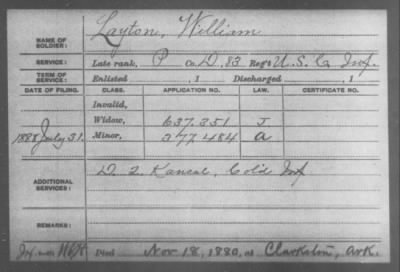 NAME OF SOLDIER: Layton, William
SERVICE: Late rank, P Co. D. 83 Reg't U.S.C. Inf.
TERM OF SERVICE: Enlisted , 1 Discharged , 1
DATE OF FILING. CLASS. APPLICATION NO. LAW. CERTIFICATE NO.
Invalid,
Widow, 637.351 J
1888 July 31. Minor, 377.484 A
ADDITIONAL SERVICES: D. 2. Kansas, Cold Inf
REMARKS:
Died Nov 18, 1880, at Clarkston, Ark.